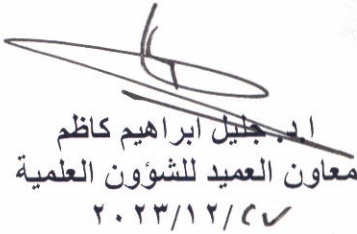 ا.د. جليل ابراهيم كاظم
معاون العميد للشؤون العلمية
٢٠٢٣/١٢/٢٧